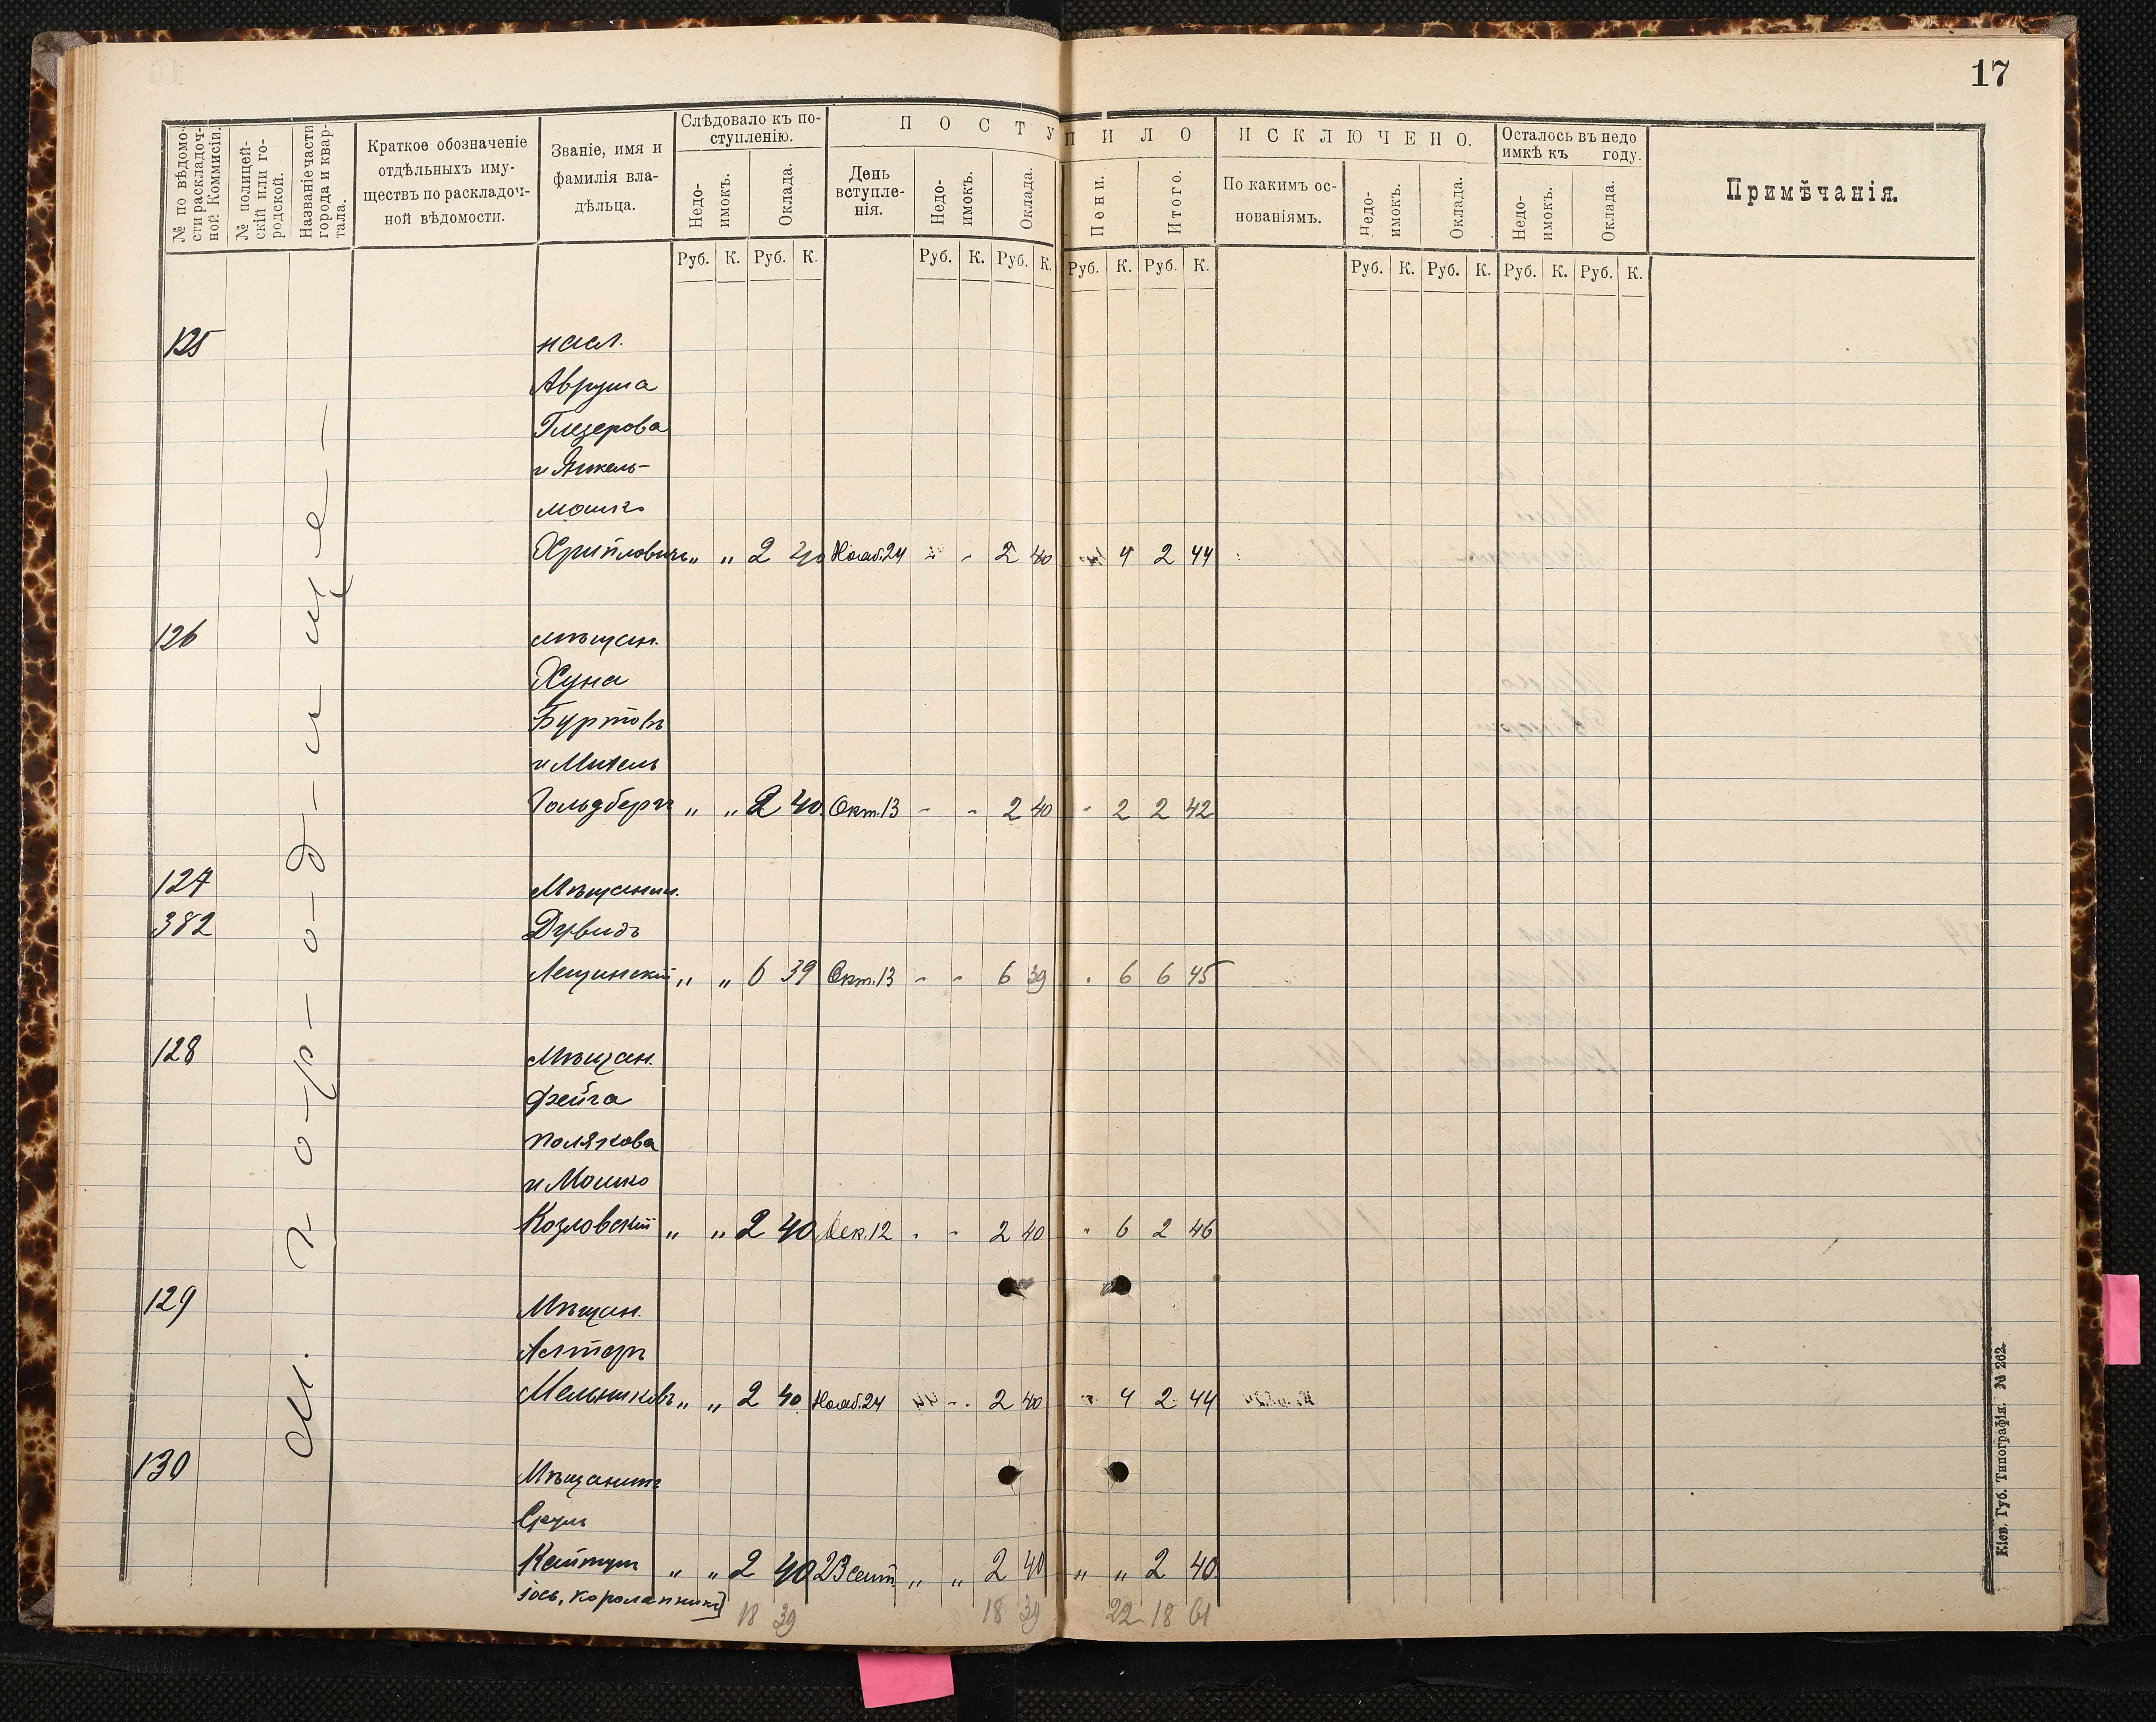 17
№ по вѣдомо-
сти раскладоч-
ной Коммисіи.
№ полицей-
скій или го-
родской.
Названіе части
города и квар-
тала.
Краткое обозначеніе
отдѣльныхъ иму-
ществъ по раскладоч-
ной вѣдомости.
Званіе, имя и
фамилія вла-
дѣльца.
Слѣдовало къ по-
ступленію.
Недо-
имокъ.
Оклада.
ПОСТУПИЛО
День
вступле-
нія.
Недо-
имокъ.
Оклада.
Пени.
Итого.
ИСКЛЮЧЕНО.
По какимъ ос-
нованіямъ.
Недо-
имокъ.
Оклада.
Осталось въ недо
имкѣ къ году.
Недо-
имокъ.
Оклада.
Примѣчанія.
Руб. К. Руб. К. Руб. К. Руб. К. Руб. К. Руб. К. Руб. К. Руб. К. Руб. К. Руб. К.
М. го-ро-д-и ще-
125 насл.
Аврума
Глезерова
и Янкель-
мошко
Хрипловичъ „ „ 2 40 Нояб. 24 - - 2 40 4 2 44
126 мѣщан.
Хуна
Буртовъ
и Митель
Гольдбергъ „ „ 2 40 Окт. 13 - - 2 40 - 2 2 42
127 Мѣщанин.
382 Дувидъ
Лещинскій „ „ 6 39 Окт. 13 - - 6 39 - 6 6 45
128 Мѣщан.
Фейга
Полякова
и Мошко
Козловскій „ „ 2 40 Дек. 12 - - 2 40 - 6 2 46
129 Мѣщан.
Мельниковъ „ „ 2 40 Нояб. 24 - - 2 40 4 2 44
130 Мѣщанинъ
Сруль
„ „ 2 40 23 сент. „ „ 2 40 „ „ 2 40
18 39 18 39 22 18 61
Кіев. Губ. Типографія. № 262.